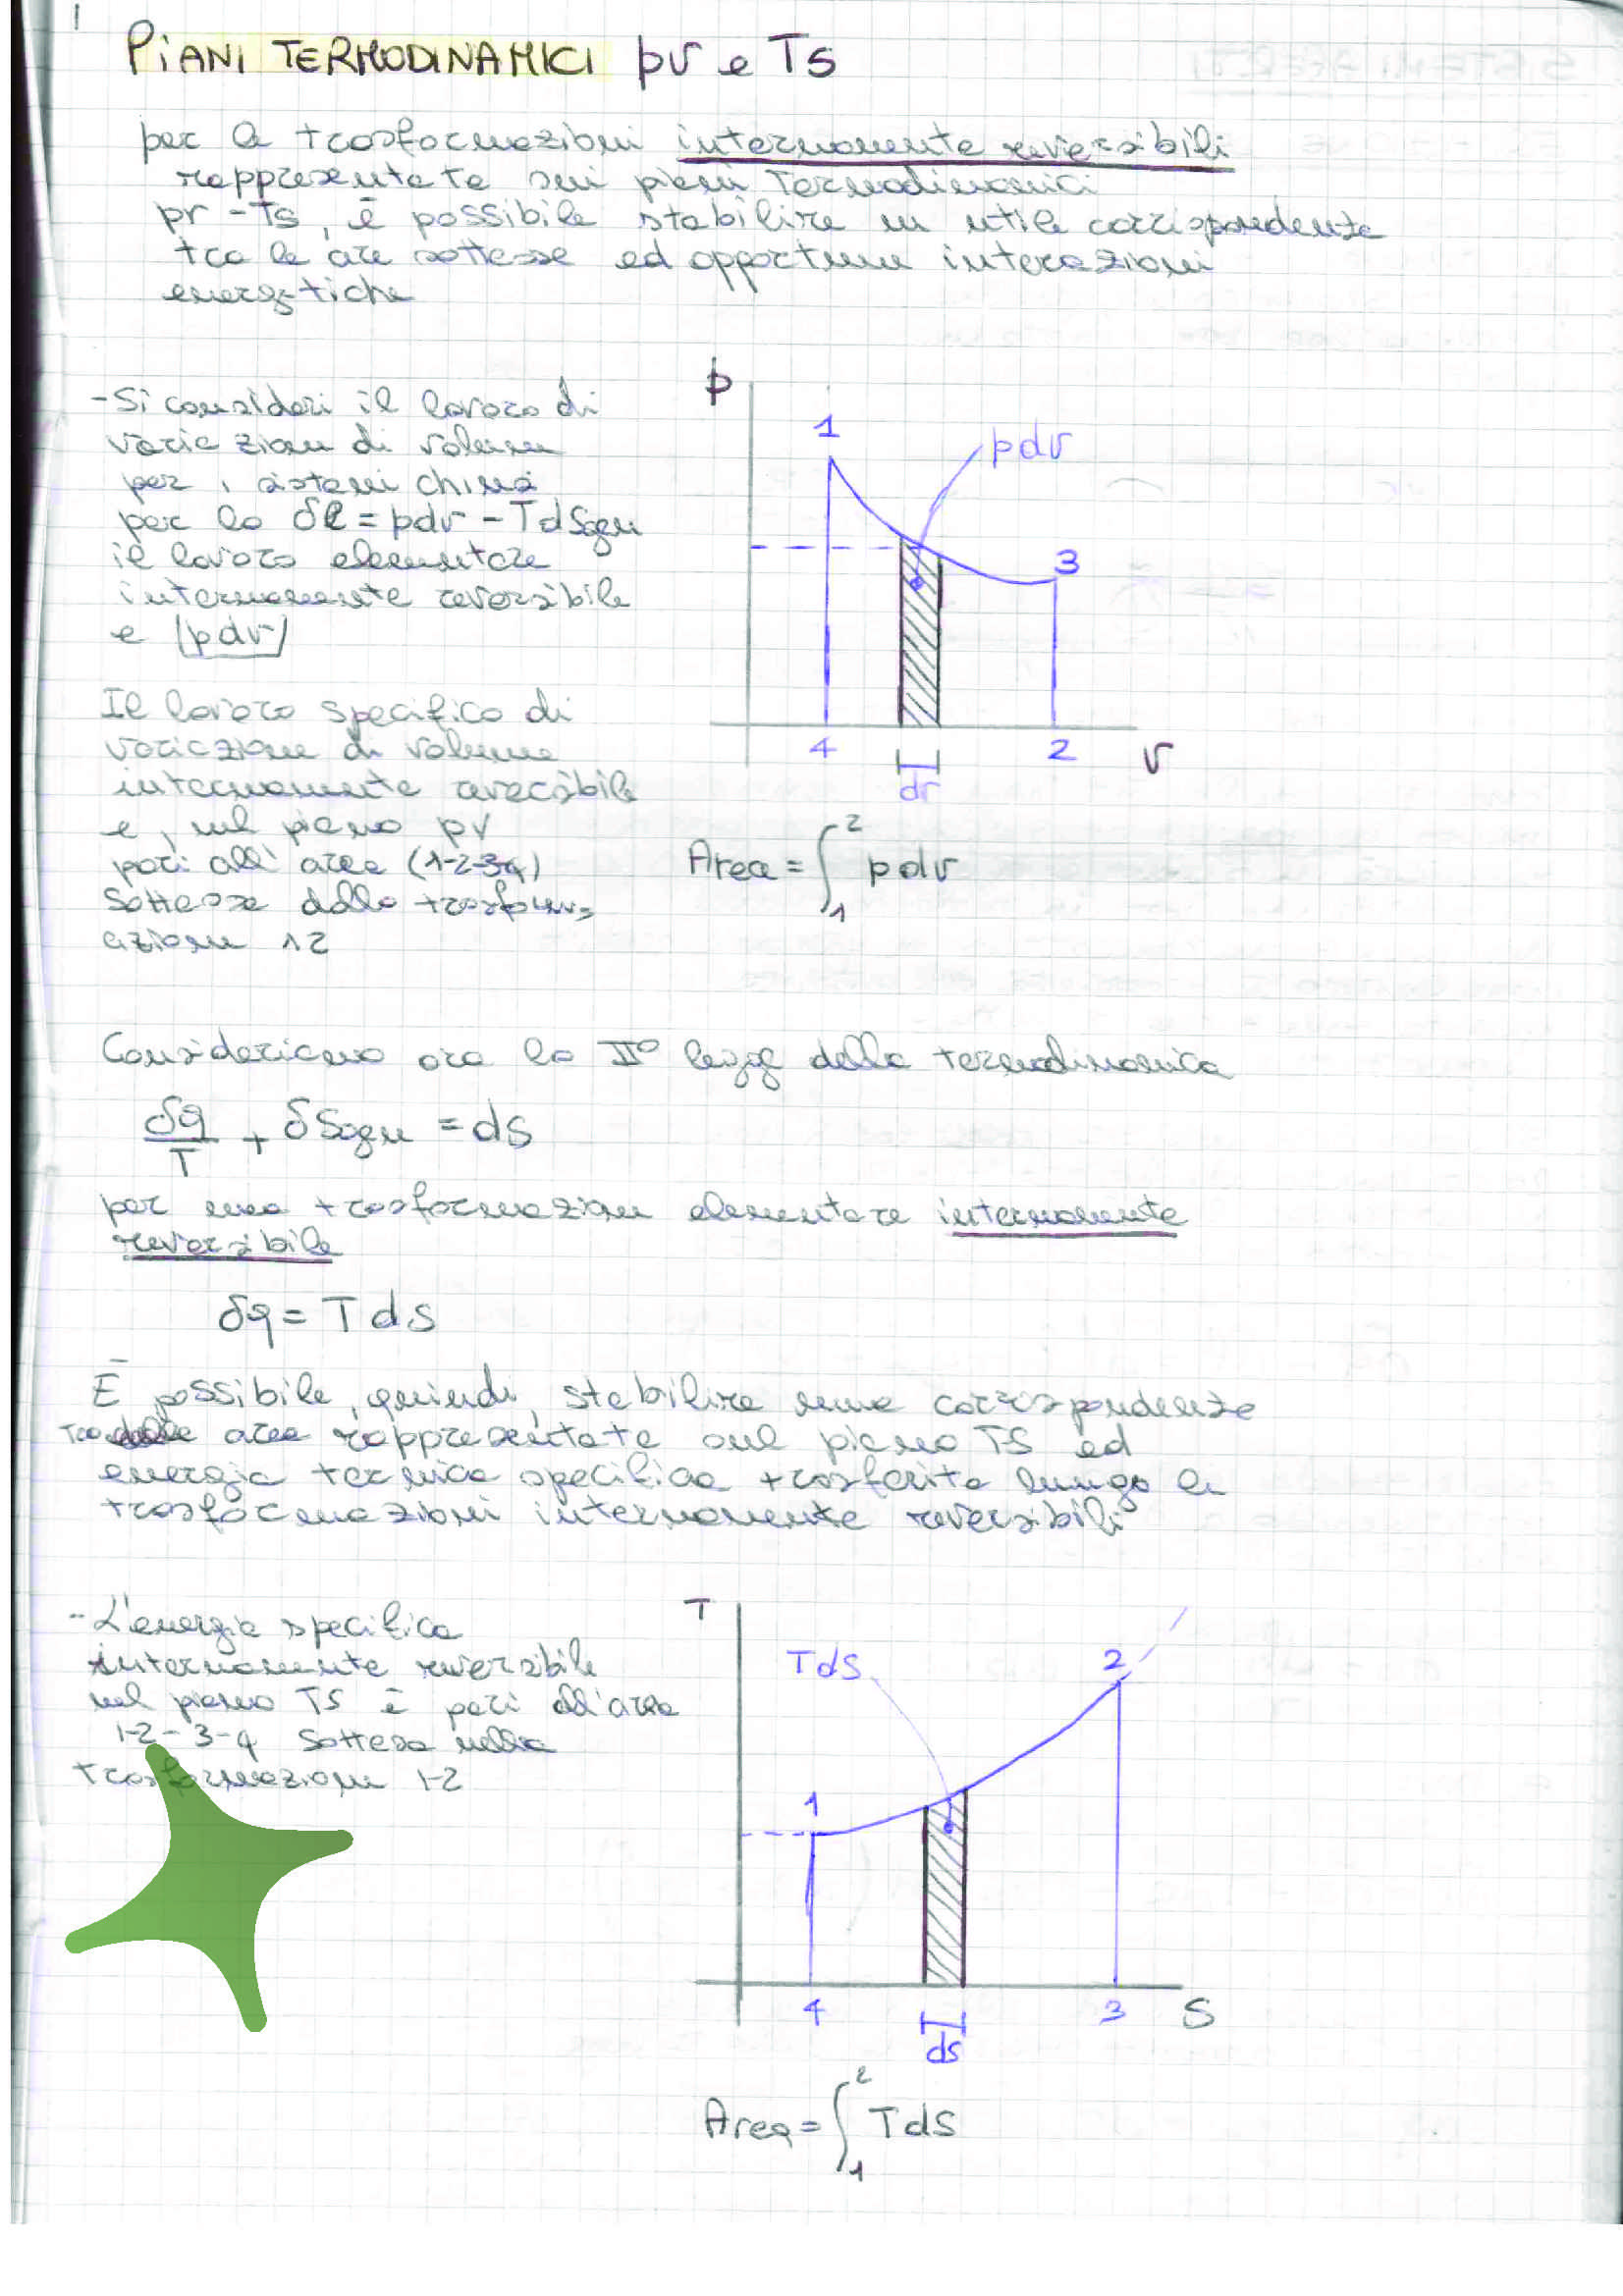 1
PIANI TERMODINAMICI pv e Ts
per le trasformazioni internamente reversibili
rappresentate sui piani Termodinamici
pv - Ts, è possibile stabilire un utile corrispondente
tra le aree sottese ed opportune interazioni
energetiche
- Si consideri il lavoro di
variazione di volume
per i sistemi chiusi
per lo δl = pdv - TdSgen
il lavoro elementare
internamente reversibile
e (pdv)
p
1
pdv
3
4
2
v
dv
Il lavoro specifico di
variazione di volume
internamente reversibile
e, sul piano pv
pari all'area (1-2-3-4)
Sottesa dalla trasform-
azione 12
Area = ∫₁² pdv
Consideriamo ora la II° legge della termodinamica
δq/T + δSgen = ds
per una trasformazione elementare internamente
reversibile
δq = T ds
È possibile, quindi, stabilire una corrispondenza
Tra aree rappresentate sul piano TS ed
energia termica specifica trasferita lungo le
trasformazioni internamente reversibili
- L'energia specifica
internamente reversibile
nel piano TS è pari all'area
1-2-3-4 Sottesa nella
trasformazione 1-2
T
Tds
2
1
4
3
S
ds
Area = ∫₁² TdS